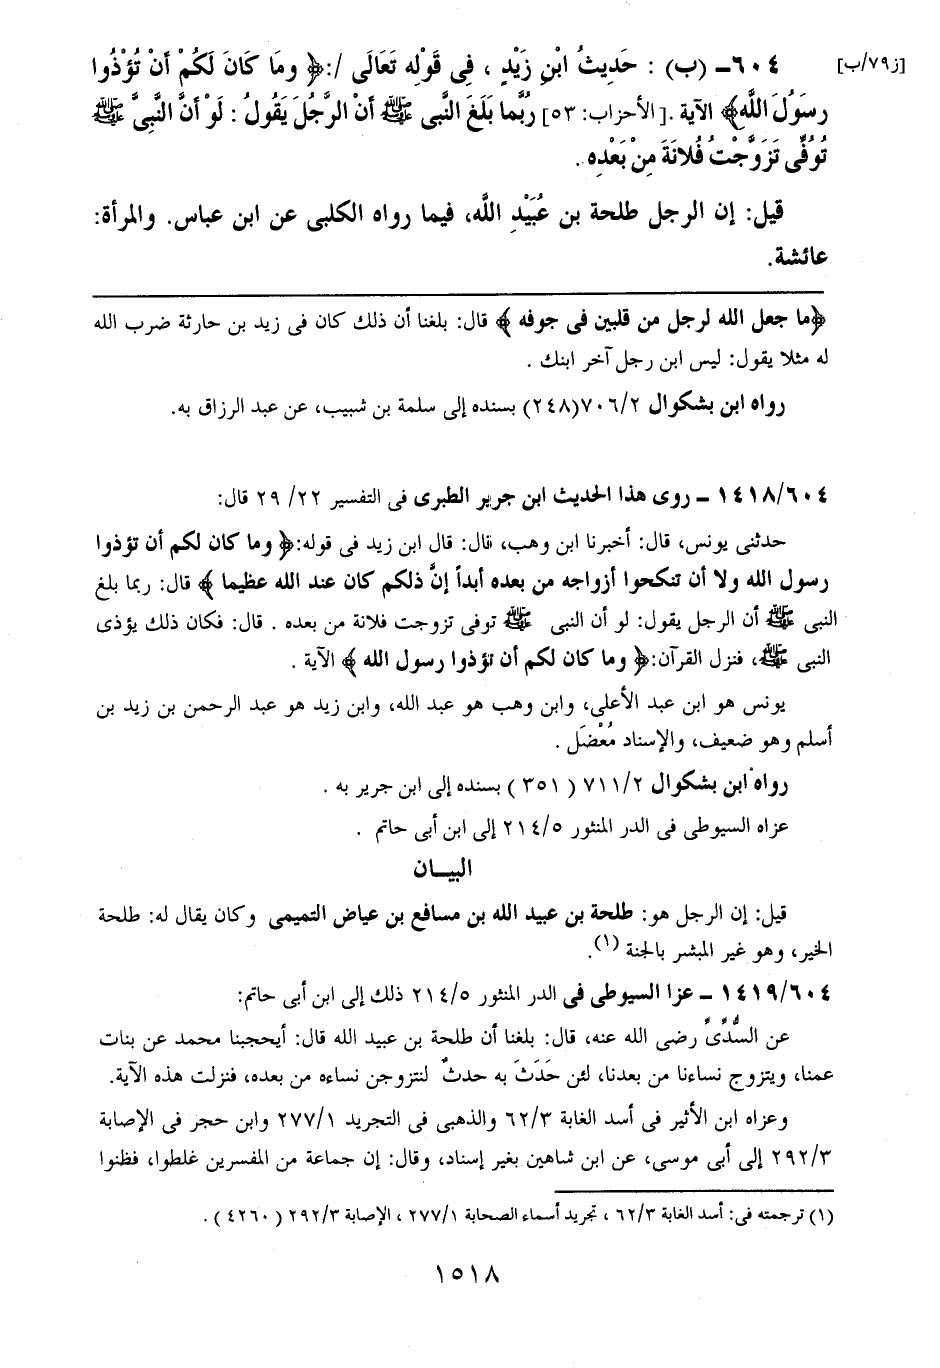 [ز٧٩/ب]
٦٠٤ــ (ب) : حَدِيثُ ابْنِ زَيْدٍ ، فِى قَوْلِه تَعَالَى /:﴿ ومَا كَانَ لَكُمْ أَنْ تُؤْذُوا
رسَوُلَ اللَّه﴾ الآية .[الأحزاب: ٥٣] رُبَّما بَلَغَ النَّبى ﷺ أَنْ الرَّجُلَ يَقُولُ : لَوْ أَنَّ النَّبِىَّ ﷺ
تُوُفِّى تَزَوَّجْتُ فُلانَةَ مِنْ بَعْدِه .
قيل: إن الرجل طلحة بن عُبَيْدِ اللَّه، فيما رواه الكلبى عن ابن عباس. والمرأة:
عائشة.
﴿ما جعل الله لرجل من قلبين فى جوفه ﴾ قال: بلغنا أن ذلك كان فى زيد بن حارثة ضرب الله
له مثلا يقول: ليس ابن رجل آخر ابنك .
رواه ابن بشكوال ٧٠٦/٢(٢٤٨) بسنده إلى سلمة بن شبيب، عن عبد الرزاق به.
١٤١٨/٦٠٤ ــ روى هذا الحديث ابن جرير الطبرى فى التفسير ٢٢/ ٢٩ قال:
حدثنى يونس، قال: أخبرنا ابن وهب، قال: قال ابن زيد فى قوله:﴿ وما كان لكم أن تؤذوا
رسول الله ولا أن تنكحوا أزواجه من بعده أبداً إنَّ ذلكم كان عند الله عظيما ﴾ قال: ربما بلغ
النبى ﷺ أن الرجل يقول: لو أن النبى ﷺ توفى تزوجت فلانة من بعده . قال: فكان ذلك يؤذى
النبى ﷺ، فنزل القرآن:﴿ وما كان لكم أن تؤذوا رسول الله ﴾ الآية .
يونس هو ابن عبد الأعلى، وابن وهب هو عبد الله، وابن زيد هو عبد الرحمن بن زيد بن
أسلم وهو ضعيف، والإسناد مُعْضَل .
رواه ابن بشكوال ٧١١/٢ ( ٣٥١ ) بسنده إلى ابن جرير به .
عزاه السيوطى فى الدر المنثور ٢١٤/٥ إلى ابن أبى حاتم .
البيــان
قيل: إن الرجل هو: طلحة بن عبيد الله بن مسافع بن عياض التميمى وكان يقال له: طلحة
الخير، وهو غير المبشر بالجنة (١).
١٤١٩/٦٠٤ ــ عزا السيوطى فى الدر المنثور ٢١٤/٥ ذلك إلى ابن أبى حاتم:
عن السُّدِّىِّ رضى الله عنه، قال: بلغنا أن طلحة بن عبيد الله قال: أيحجبنا محمد عن بنات
عمنا، ويتزوج نساءنا من بعدنا، لئن حَدَثَ به حدثٌ لنتزوجن نساءه من بعده، فنزلت هذه الآية.
وعزاه ابن الأثير فى أسد الغابة ٦٢/٣ والذهبى فى التجريد ٢٧٧/١ وابن حجر فى الإصابة
٢٩٢/٣ إلى أبى موسى، عن ابن شاهين بغير إسناد، وقال: إن جماعة من المفسرين غلطوا، فظنوا
(١) ترجمته فى: أسد الغابة ٦٢/٣ ، تجريد أسماء الصحابة ٢٧٧/١ ، الإصابة ٢٩٢/٣ ( ٤٢٦٠ ) .
١٥١٨